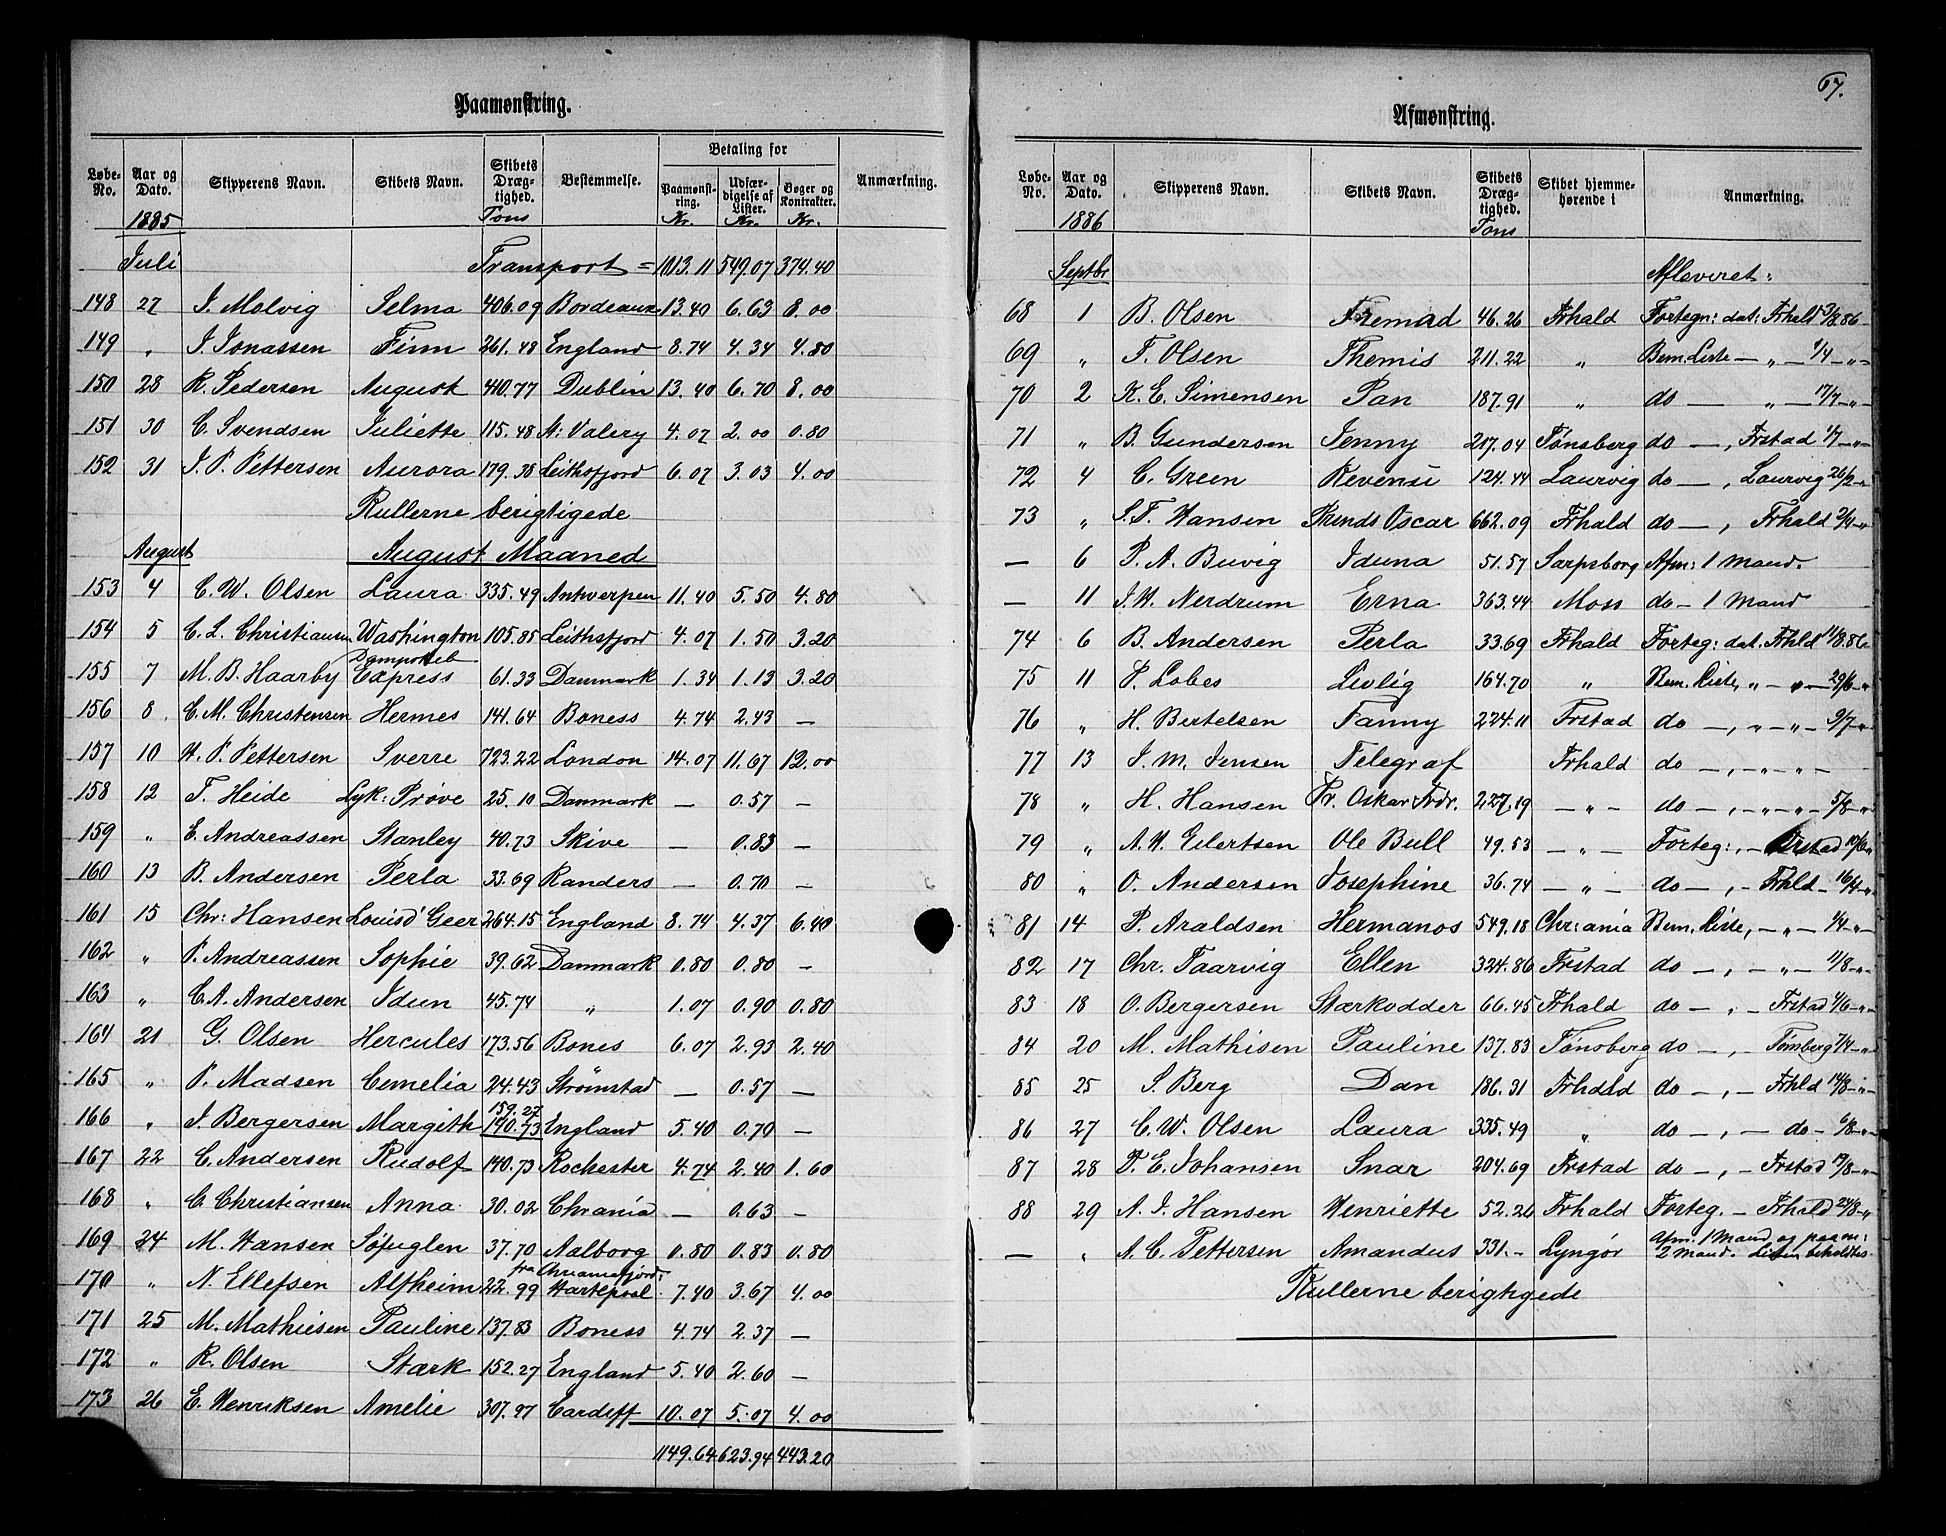 Paamønstring.
Løbe-No. Aar og Dato. Skipperens Navn. Skibets Navn. Skibets Dræg-tighed. Bestemmelse. Betaling for Paamønst-ring. Udfær-digelse af Lister. Bøger og Kontrakter. Anmærkning.
1885 Tons Kr. Kr. Kr.
Juli Transport = 1013.11 549.07 374.40
148 27 J. Molvig Selma 406.09 Bordeaux 13.40 6.63 8.00
149 " J. Jonassen Finn 261.48 England 8.74 4.34 4.80
150 28 R. Pedersen August 410.77 Dublin 13.40 6.70 8.00
151 30 C. Svendsen Juliette 115.48 St: Valery 4.07 2.00 0.80
152 31 J. P. Pettersen Aurora 179.38 Leithsfjord 6.07 3.03 4.00
Rullerne berigtigede
August August Maaned
153 4 C. W. Olsen Laura 335.49 Antwerpen 11.40 5.50 4.80
154 5 C. L. Christiansen Washington 105.85 Leithsfjord 4.07 1.50 3.20
155 7 M. B. Haarby Express 61.33 Danmark 1.34 1.13 3.20
156 8. C. M. Christensen Hermes 141.64 Boness 4.74 2.43 —
157 10 H. P. Pettersen Sverre 723.22 London 14.07 11.67 12.00
158 12 T. Heide Lyk: Prøve 25.10 Danmark — 0.57 —
159 " E. Andreassen Stanley 40.73 Skive — 0.83 —
160 13 B. Andersen Perla 33.69 Randers — 0.70 —
161 15 Chr: Hansen Louis d'Geer 264.15 England 8.74 4.37 6.40
162 " P. Andreassen Sophie 39.62 Danmark 0.80 0.80 —
163 " C. A. Andersen Idun 45.74 " 1.07 0.90 0.80
164 21 G. Olsen Hercules 173.56 Bones 6.07 2.93 2.40
165 " P. Madsen Cemelia 24.43 Strømstad — 0.57 —
159.27
166 " J. Bergersen Margith 140.73 England 5.40 0.70 —
167 22 C. Andersen Rudolf 140.73 Rochester 4.74 2.40 1.60
168 " C. Christiansen Anna 30.02 Chrania — 0.63 —
169 24 M. Hansen Søfuglen 37.70 Aalborg 0.80 0.83 0.80
fra Chrianiafjord:
170 " N. Ellefsen Alfheim 22.99 Hartepool 7.40 3.67 4.00
171 25 M. Mathiesen Pauline 137.83 Boness 4.74 2.37 —
172 " R. Olsen Stærk 152.27 England 5.40 2.60 —
173 26 E. Henriksen Amelie 307.97 Cardiff 10.07 5.07 4.00
1149.64 623.94 443.20
67.
Afmønstring.
Løbe-No. Aar og Dato. Skipperens Navn. Skibets Navn. Skibets Dræg-tighed. Skibet hjemme-hørende i Anmærkning.
1886 Tons
Septbr Afleveret:
68 1 B. Olsen Fremad 46.26 Frhald Fortegn: dat: Frhald 3/8.86
69 " F. Olsen Themis 211.22 " Bem. Liste — " — 9/4 — " —
70 2 K. E. Simensen Pan 187.91 " do — " — 17/7 — " —
71 " B. Gundersen Jenny 217.04 Tønsberg do — , Frstad 1/7 — " —
72 4 C. Green Revensi 124.44 Laurvig do — , Laurvig 26/2 — "
73 " S. F. Hansen Oscar 662.09 Frhald do — , Frhald 2/4 — "
— 6 P. A. Buvig Iduna 51.57 Sarpsborg Afm: 1 Mand.
— 11 J. H. Nerdrum Erna 363.44 Moss do — 1 Mand
74 6 B. Andersen Perla 33.69 Frhald Forteg: dat. Frhld 11/8.86
75 11 P. Lobes Livlig 164.70 " Bem. Liste, " — " — 29/6 — "
76 " H. Bertelsen Fanny 224.11 Frstad do — , " — " — 9/7 — "
77 13 J. M. Jensen Telegraf Frhald do — , — " — " —
78 " H. Hansen Pr. Oskar Fdr. 227.19 — " — do — , — " — " — 5/8 — "
79 " A. H. Eilertsen Ole Bull 49.53 — " — Forteg: , — Frstad
80 " O. Andersen Josephine 36.74 — " — do — , — Frhld — 16/4 — "
81 14 P. Araldsen Hermanos 549.18 Chr:ania Bem. Liste, — " — 1/4 — "
82 17 Chr. Taarvig Ellen 324.86 Frstad do — , — " — 11/8 — "
83 18 O. Bergersen Stærkodder 66.45 Frhald do — , — Frstad 4/6 — "
84 20 M. Mathisen Pauline 137.83 Tønsberg do — , — Tønsberg 7/4 — "
85 25 S. Berg Dan 186.31 Frhald do — , — Frhld 14/8 — " —
86 27 C. W. Olsen Laura 335.49 " do — , — do — 6/8 — " —
87 28 T. E. Johansen Snar 204.69 Frstad do — , — Frstad 17/8 — " —
88 29 A. J. Hansen Henriette 52.26 Frhald Forteg. — Frhald 24/8 — "
— " A. C. Pettersen Amandus 331.— Lyngør Afm: 1 Mand og paam: 2 Mand. Listen beholdtes
Rullerne berigtigede